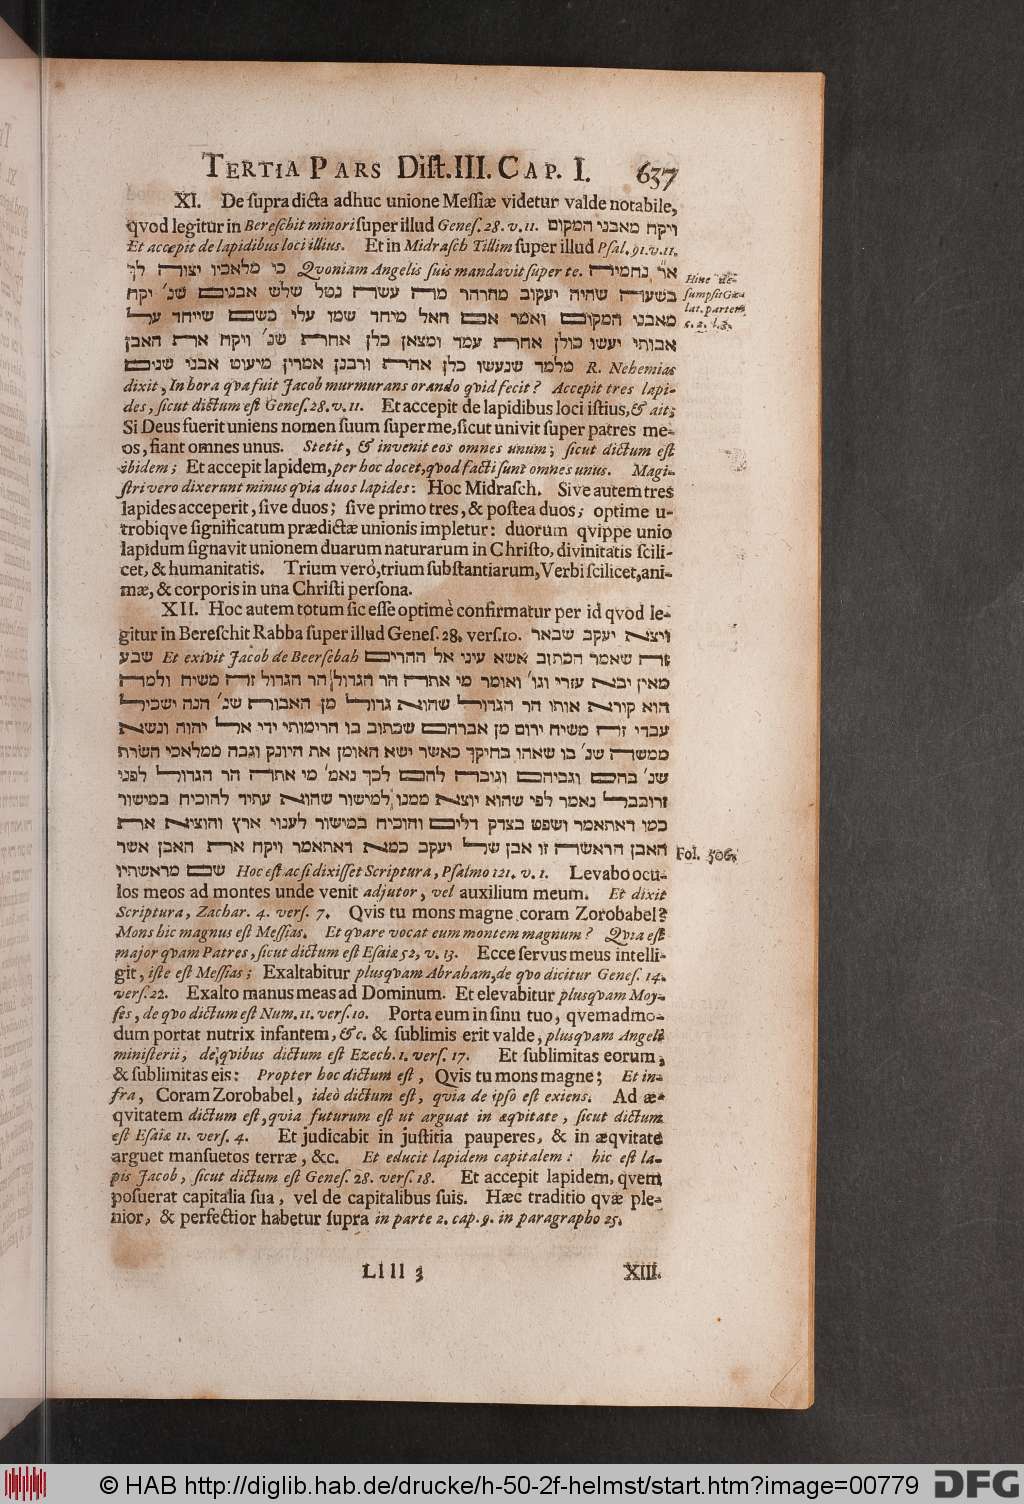 TERTIA PARS Dist. III. CAP. I. 637
XI. De supra dicta adhuc unione Messiæ videtur valde notabile,
qvod legitur in Bereschit minori super illud Genes. 28. v. 11. ויקח מאבני המקום
Et accepit de lapidibus loci illius. Et in Midrasch Tillim super illud Psal. 91. v. 11.
כי מלאכיו יצוה לך Qvoniam Angelis suis mandavit super te. א"ר נחמיה
בשעה שהיה יעקוב מהרהר מה עשה נטל שלש אבנים שנ' יקח
מאבני המקום ואמר אם האל מיחד שמו עלי כשם שייחד על
אבותי יעשו כולן אחת עמד ומצאן כלן אחת שנ' ויקח את האבן
מלמד שנעשו כלן אחת ורבנן אמרין מיעוט אבני שנים R. Nehemias
dixit, In hora qva fuit Jacob murmurans orando qvid fecit? Accepit tres lapi-
des, sicut dictum est Genes. 28. v. 11. Et accepit de lapidibus loci istius, & ait;
Si Deus fuerit uniens nomen suum super me, sicut univit super patres me-
os, fiant omnes unus. Stetit, & invenit eos omnes unum; sicut dictum est
ibidem; Et accepit lapidem, per hoc docet, qvod facti sunt omnes unus. Magi-
stri vero dixerunt minus qvia duos lapides: Hoc Midrasch. Sive autem tres
lapides acceperit, sive duos; sive primo tres, & postea duos; optime u-
trobiqve significatum prædictæ unionis impletur: duorum qvippe unio
lapidum signavit unionem duarum naturarum in Christo, divinitatis scili-
cet, & humanitatis. Trium verò, trium substantiarum, Verbi scilicet, ani-
mæ, & corporis in una Christi persona.
XII. Hoc autem totum sic esse optimè confirmatur per id qvod le-
gitur in Bereschit Rabba super illud Genes. 28. vers. 10. ויצא יעקב שבאר
שבע Et exivit Jacob de Beersebah זה שאמר הכתוב אשא עיני אל ההרים
מאין יבא עזרי וגו' ואומר מי אתה הר הגדול הר הגדול זה משיח ולמה
הוא קורא אותו הר הגדול שהוא גדול מן האבות שנ' הנה ישכיל
עבדי זה משיח ירום מן אברהם שכתוב בו הרימותי ידי אל יהוה ונשא
ממשה שנ' בו שאהו בחיקך כאשר ישא האומן את היונק וגבה ממלאכי השרת
שנ' בהם וגביהם וגובה להם לכך נאמ' מי אתה הר הגדול לפני
זרובבל נאמר לפי שהוא יוצא ממנו למישור שהוא עתיד להוכיח במישור
כמו דאתאמר ושפט בצדק דלים והוכיח במישור לענוי ארץ והוציא את
האבן הראשה זו אבן של יעקב כמא דאתאמר ויקח את האבן אשר
שם מראשתיו Hoc est acsi dixisset Scriptura, Psalmo 121. v. 1. Levabo ocu-
los meos ad montes unde venit adjutor, vel auxilium meum. Et dixit
Scriptura, Zachar. 4. vers. 7. Qvis tu mons magne coram Zorobabel?
Mons hic magnus est Messias. Et qvare vocat eum montem magnum? Qvia est
major qvam Patres, sicut dictum est Esaiæ 52, v. 13. Ecce servus meus intelli-
git, iste est Messias; Exaltabitur plusqvam Abraham, de qvo dicitur Genes. 14.
vers. 22. Exalto manus meas ad Dominum. Et elevabitur plusqvam Moy-
ses, de qvo dictum est Num. 11. vers. 10. Porta eum in sinu tuo, qvemadmo-
dum portat nutrix infantem, &c. & sublimis erit valde, plusqvam Angeli
ministerii, de qvibus dictum est Ezech. 1. vers. 17. Et sublimitas eorum,
& sublimitas eis: Propter hoc dictum est, Qvis tu mons magne; Et in-
fra, Coram Zorobabel, ideò dictum est, qvia de ipso est exiens. Ad æ-
qvitatem dictum est, qvia futurum est ut arguat in æqvitate, sicut dictum
est Esaiæ 11. vers. 4. Et judicabit in justitia pauperes, & in æqvitate
arguet mansuetos terræ, &c. Et educit lapidem capitalem: hic est la-
pis Jacob, sicut dictum est Genes. 28. vers. 18. Et accepit lapidem, qvem
posuerat capitalia sua, vel de capitalibus suis. Hæc traditio qvæ ple-
nior, & perfectior habetur supra in parte 2. cap. 9. in paragrapho 25.
Llll 3 XIII.
Hinc de-
sumpsit Ga-
lat. partem
Fol. 506.
© HAB http://diglib.hab.de/drucke/h-50-2f-helmst/start.htm?image=00779 DFG